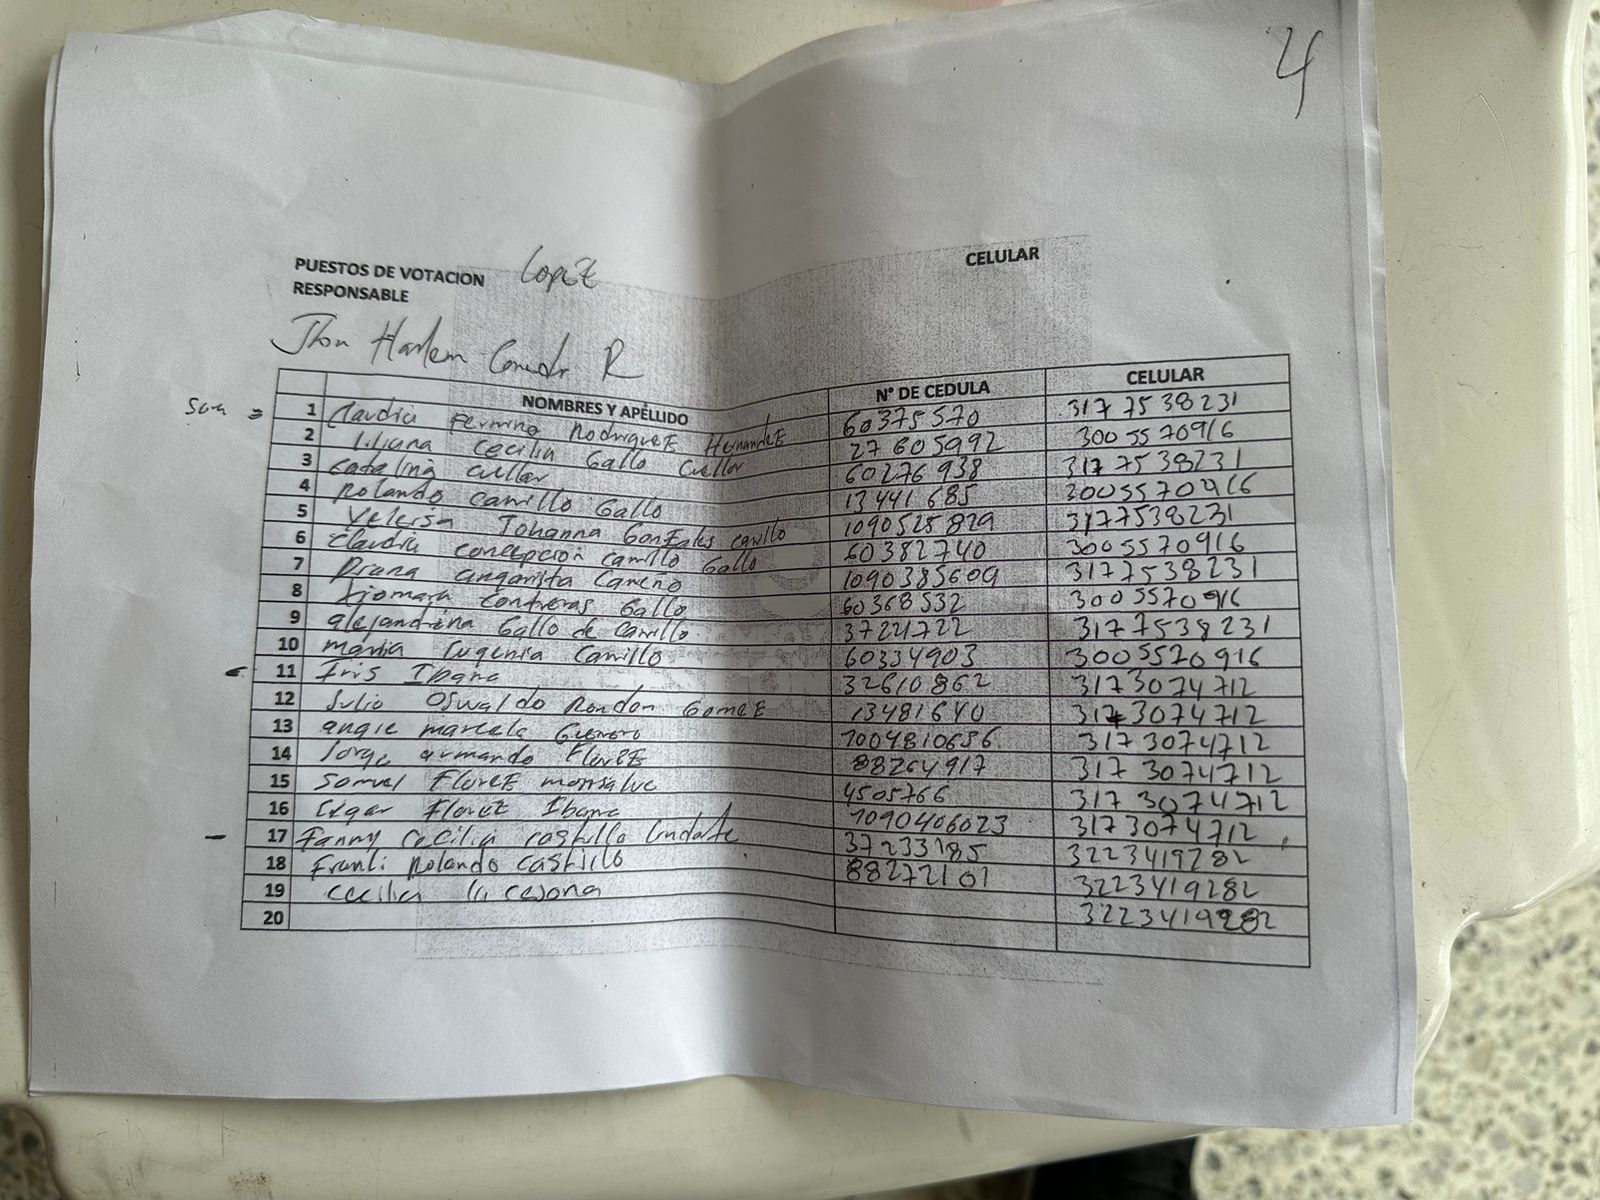 4
PUESTOS DE VOTACION Lopez CELULAR
RESPONSABLE
Jhon Harlem R
NOMBRES Y APÉLLIDO N° DE CEDULA CELULAR
1 Claudia Rodriguez Hernandez 60375570 3177538231
2 Liliana Cecilia Gallo Cuellar 27605992 3005570916
3 Catalina Cuellar 60276938 3177538231
4 Rolando Carrillo Gallo 13441685 3005570916
5 Johanna Gonzales Carrillo 1090525829 3177538231
6 Claudia Concepcion Carrillo Gallo 60382740 3005570916
7 Diana angarita Carreño 1090385609 3177538231
8 Xiomara Contreras Gallo 60368532 3005570916
9 alejandrina Gallo de Carrillo 37221722 3177538231
10 maria Eugenia Carrillo 60334903 3005570916
11 Iris Ibarra 32610862 3173074712
12 Julio Oswaldo Rondon Gomez 13481640 3173074712
13 angie marcela Guerrero 1004810656 3173074712
14 Jorge armando Florez 88264917 3173074712
15 Samuel Florez monsalve 4505766 3173074712
16 Edgar Florez Ibarra 1090406023 3173074712
17 Fanny Cecilia castillo 37233185 3223419282
18 Rolando castillo 88272101 3223419282
19 cecilia 3223419282
20